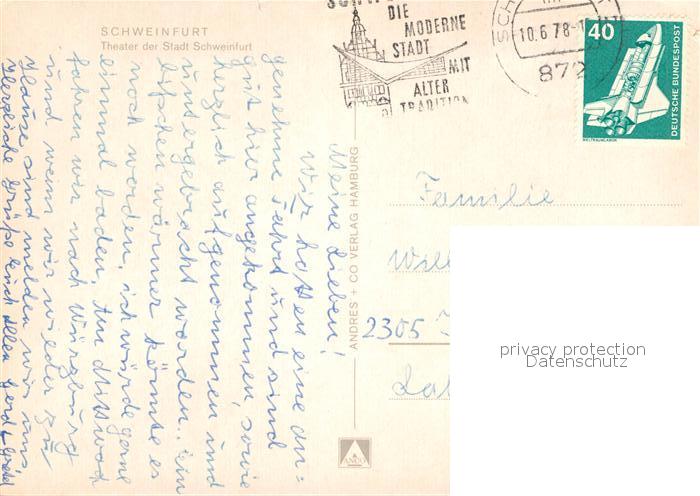 SCHWEINFURT
Theater der Stadt Schweinfurt
DIE
MODERNE
STADT
MIT
ALTER
TRADITION
10.6.78
872
40
DEUTSCHE BUNDESPOST
WELTRAUMLABOR
ANDRES + CO VERLAG HAMBURG
ANCO
Meine Lieben!
Wir hatten eine an-
genehme Fahrt und sind
gut hier angekommen, sowie
herzlich aufgenommen und
untergebracht worden. Ein
bißchen wärmer könnte es
noch werden, ich würde gerne
einmal baden. Am Mittwoch
fahren wir nach Würzburg
und wenn wir wieder zu
Hause sind melden wir uns
Herzliche Grüße Euch Allen Gerd +
Familie
Will
2305
privacy protection
Datenschutz